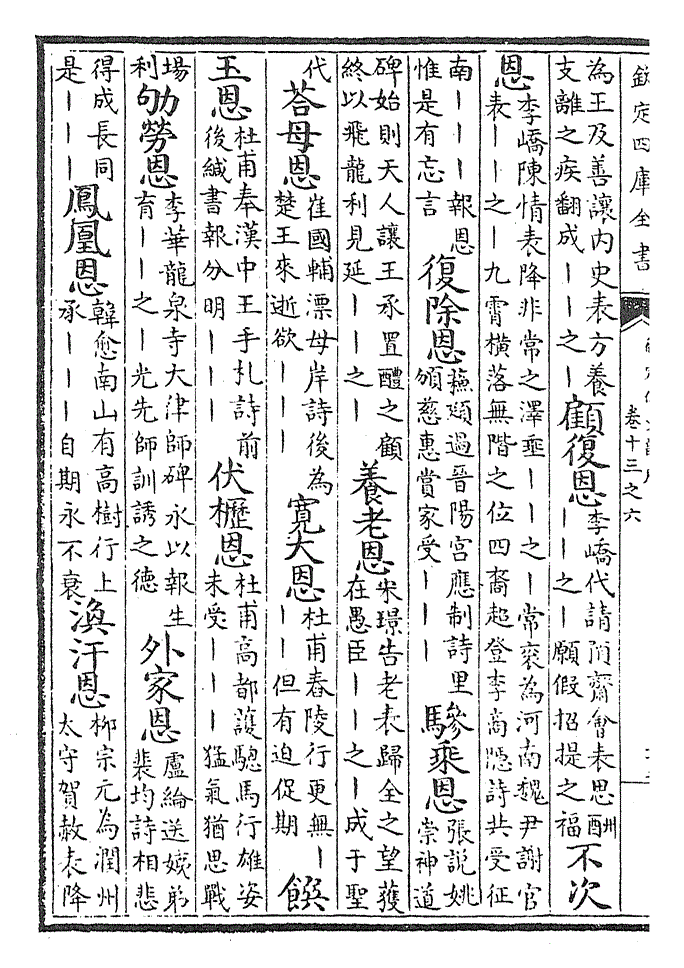 欽定四庫全書
卷十三之六
為王及善讓內史表方養
支離之疾翻成——之—
顧復恩
李嶠代請隋齋會表思酬
——之—願假招提之福
不次
恩
李嶠陳情表降非常之澤垂——之—常袞為河南魏尹謝官
表——之—九霄橫落無階之位四裔超登李商隱詩共受征
南———報恩
惟是有忘言
復除恩
蘇頲過晉陽宮應制詩里
頒慈惠賞家受———
驂乘恩
張說姚
崇神道
碑始則天人讓王承置醴之顧
終以飛龍利見延——之—
養老恩
宋璟告老表歸全之望獲
在愚臣——之—成于聖
代
荅母恩
崔國輔漂母岸詩後為
楚王來逝欲———
寛大恩
杜甫舂陵行更無—
——但有迫促期
饌
玉恩
杜甫奉漢中王手札詩前
後緘書報分明———
伏櫪恩
杜甫高都護驄馬行雄姿
未受———猛氣猶思戰
場
利
劬勞恩
李華龍泉寺大律師碑永以報生
育——之—光先師訓誘之德
外家恩
盧綸送姨弟
裴均詩相悲
得成長同
是———
鳳凰恩
韓愈南山有高樹行上
承———自期永不衰
渙汗恩
柳宗元為潤州
太守賀赦表降